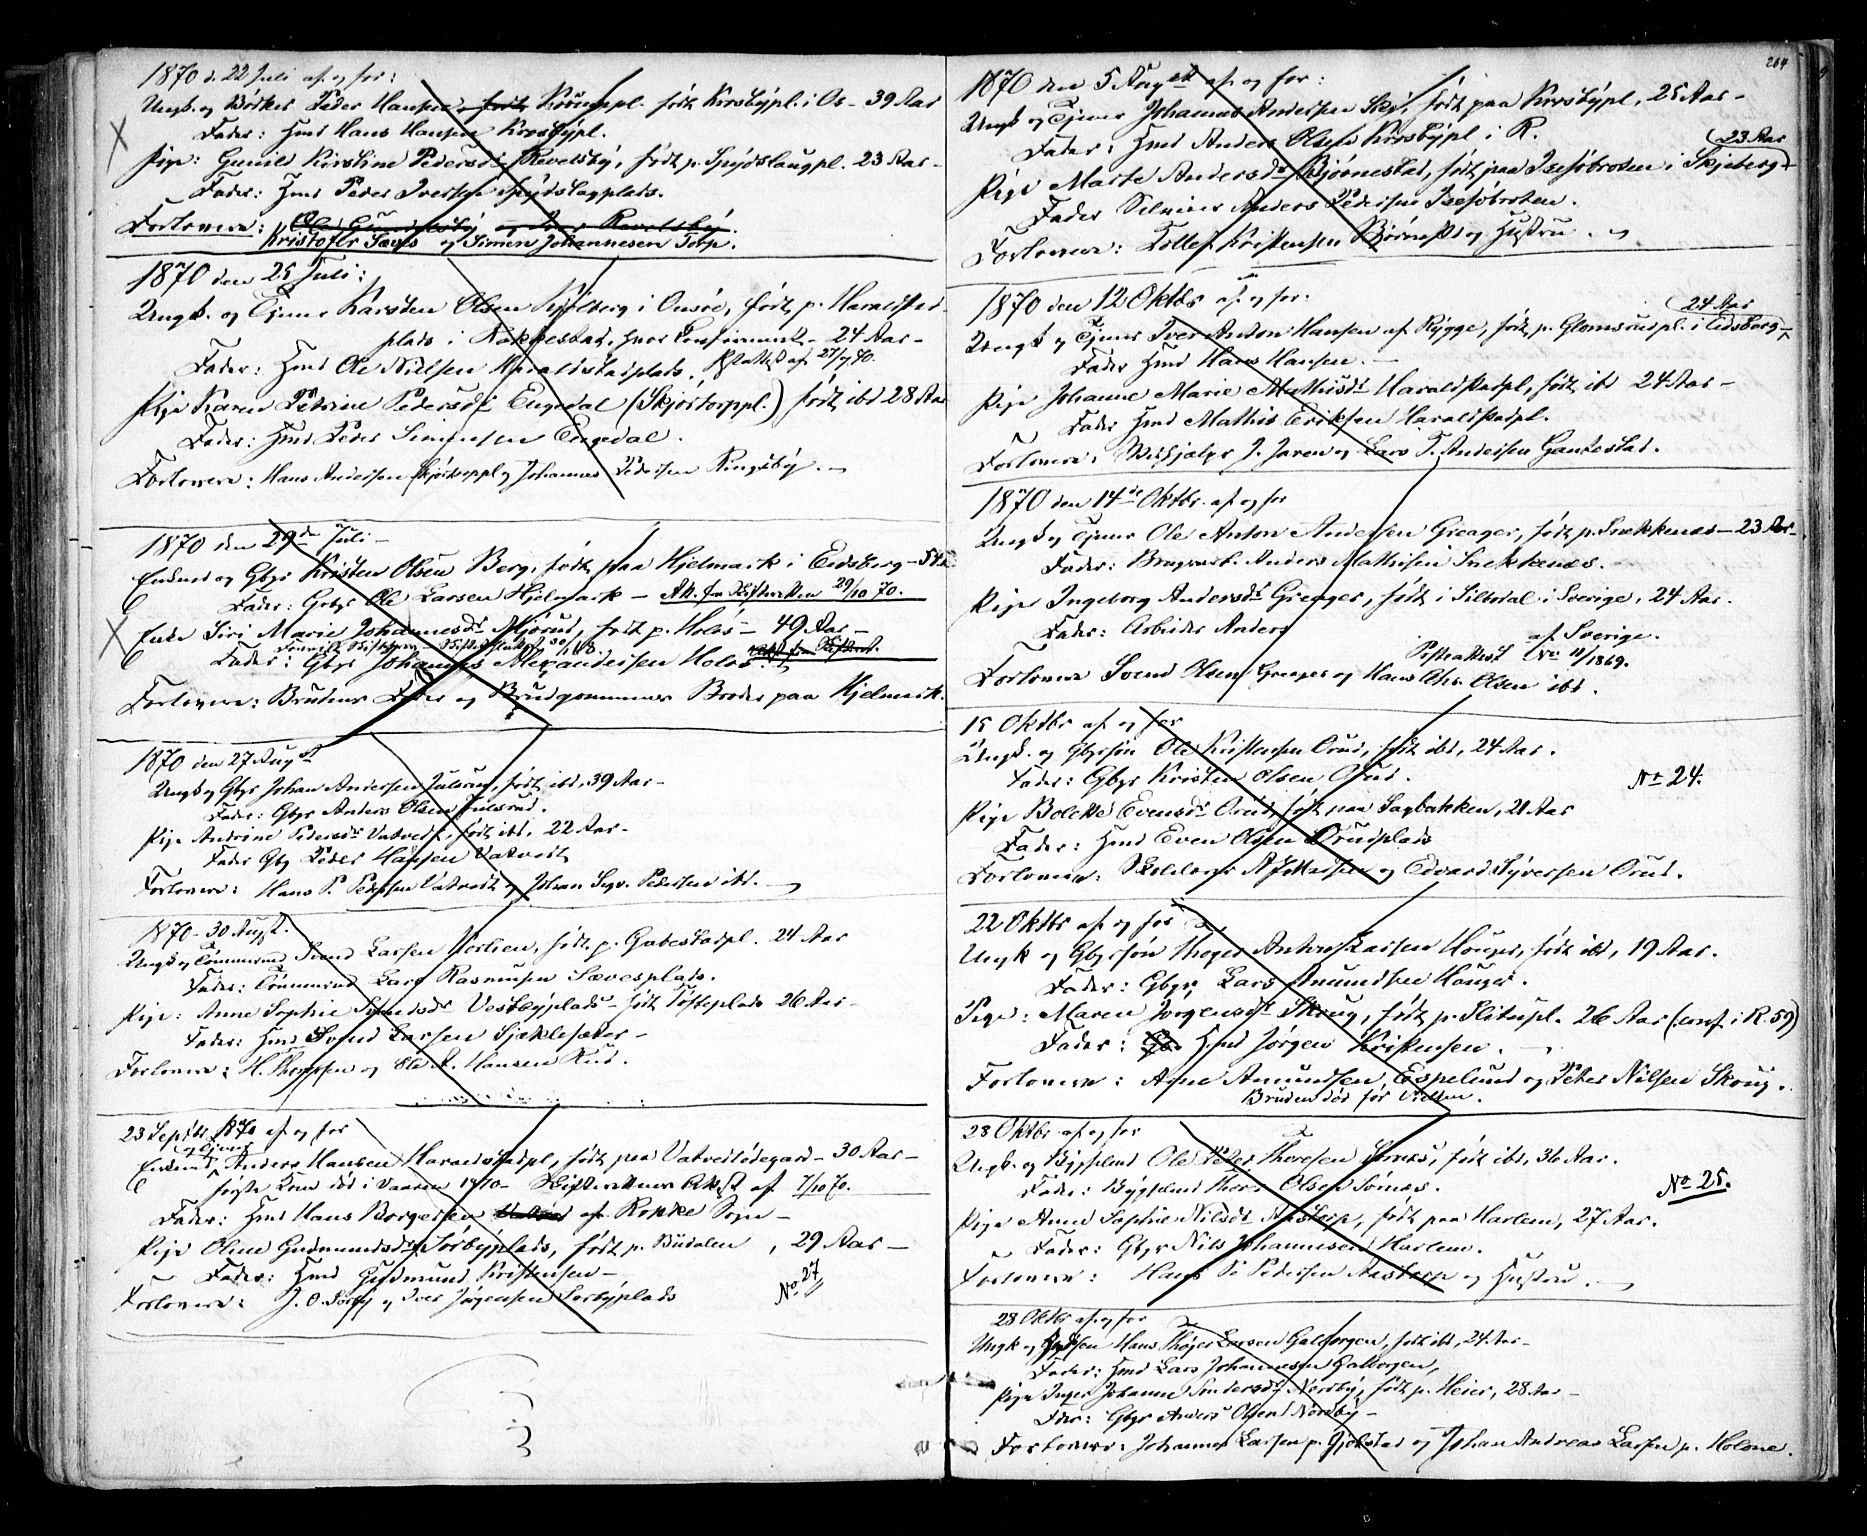 1870 d. 22 Juli af og for:
Ungk. og Bødker Peder Hansen Kroungpl. født Krosbypl. i Os - 39 Aar
Fader: Hmd Hans Hansen Krosbypl.
Pige: Gunild Kirstine Pedersdr Revelsby, født p. Spydslaugpl. 23 Aar -
Fader: Hmd Peder Iversen Spydslagplads.
Forlovere: Ole Gundersby og Iver Revelsby.
Kristoffer Sæves og Simen Johannesen Torp.
1870 den 25 Juli:
Ungk. og Tjener Karsten Olsen Kjølberg i Onsøe, født p. Haraldstad
plads i Rakkestad, hvor Confirmeret - 24 Aar -
Fader: Hmd Ole Nielsen Haraldstadplads. Attest af 27/7 70.
Pige Karen Petrine Pedersdr Engedal (Skjørtorppl.) født ibd 28 Aar
Fader: Hmd Peder Simensen Engedal.
Forlovere: Hans Andersen Skjørtorppl og Johannes Pedersen Ringsby.
1870 den 29de Juli -
Enkemd og Gbgr Kristen Olsen Berg, født paa Hjelmark i Eidsberg - 54
Fader: Gbgr Ole Larsen Hjelmark - Att. fra Skifteretten 29/10 70.
Enke Siri Marie Johannesdr Mjørud, født p. Holøs - 49 Aar -
Fader: Gbgr Johannes Alexandersen Holøs.
Forlovere: Brudens Fader og Brudgommens Broder paa Hjelmark.
1870 den 27 August
Ungk og Gbgr Johan Andersen Julsrud, født ibd, 39 Aar -
Fader: Gbgr Anders Olsen Julsrud.
Pige Andrine Pedersdr Vatvedt, født ibd, 22 Aar -
Fader Gbg Peder Hansen Vatvedt
Forlovere: Hans P. Pedersen Vatvedt og Johan Sigv. Pedersen ibd.
1870 - 30 August.
Ungk og Tømmermd Svend Larsen Horlien, født p. Gudestadpl. 24 Aar
Fader: Tømmermd Lars Rasmusen Sævesplads.
Pige: Anne Sophie Svendsdr Vestbyplads født Toftsplads 26 Aar -
Fader: Hmd Svend Larsen Sjaklesæter -
Forlovere: H. Thomesen og Ole A. Hansen Rud.
23 Septbr 1870 af og for
og Tjener
Enkemd Anders Hansen Haraldstadpl, født paa Vatvedtødegaard - 30 Aar -
første Kone død i Vaaren 1870 - Skifterettens Attest af 7/10 70.
Fader: Hmd Hans Borgersen af Rokke Sogn -
Pige Oline Gudmundsdr Sørbyplads, født p. Budalen, 29 Aar -
Fader: Hmd Gudmund Kristensen -
Forlovere: J. O. Sørby og Iver Jørgensen Sørbyplads
No 27
264
1870 den 5 August af og for:
Ungk og Tjener Johannes Andersen Skøi, født paa Krosbypl, 25 Aar -
Fader: Hmd Anders Olsen Krosbypl i R.
23 Aar
Pige Marte Andersdr Bjørnestad, født paa Isesøbroten i Skjeberg
Fader Selveier Anders Pedersen Isesøbroten.
Forlovere: Tollef Kristensen Bjørnstd og Hustru.
1870 den 12 Oktbr af og for:
24 Aar
Ungk og Tjener Iver Anton Hansen af Rygge, født p. Glomsrudpl. i Eidsberg
Fader Hmd Hans Hansen.
Pige Johanne Marie Mathisdr Haraldstadpl, født ibd 24 Aar -
Fader Hmd Mathis Eriksen Haraldstadpl.
Forlovere: J. Jaren og Lars T. Andersen Gautestad.
1870 den 14de Oktbr. af og for
Ungk og Tjener Ole Anton Andersen Greager, født p. Snekkenæs - 23 Aar -
Fader: Brugsarb. Anders Mathisen Snekkenæs.
Pige Ingeborg Andersdr Greager, født i Silbodal i Sverige, 24 Aar.
Fader: Arbeider Anders af Sverige.
Presteattest No 18/1869.
Forlovere Svend Olsen Greager og Hans Chr. Olsen ibd.
15 Oktbr af og for
Ungk. og Gbgrsøn Ole Kristensen Orud, født ibd, 24 Aar.
Fader: Gbgr Kristen Olsen Orud.
No 24.
Pige Bolette Evensdr Orud, født paa Sagbakken, 21 Aar
Fader: Hmd Even Olsen Orudplads
Forlovere: Skoldbgr A. J. Madsen og Edvard Syversen Orud.
22 Oktbr af og for
Ungk og Gbgrsøn Thoger Anton Larsen Houger, født ibd, 19 Aar.
Fader: Gbgr Lars Amundsen Houger.
Pige: Maren Jørgensdr Skoug, født p. Slitupl. 26 Aar (conf. i R. 59)
Fader: Hmd Jørgen Kristensen.
Forlovere: Arne Amundsen Espelund og Peter Nilsen Skoug.
Bruden død før Vielsen.
28 Oktbr af og for
Ungk. og Bygselmd Ole Peter Thoresen Sørnæs, født ibd, 36 Aar.
Fader: Bygselmd Thore Olsen Sørnæs.
No 25.
Pige Anne Sophie Nilsdr Aastorp, født paa Harlem, 27 Aar.
Fader: Gbgr Nils Johannesen Harlem.
Forlovere: Hans P. Pedersen Aastorp og Hustru.
28 Oktbr af og for
Ungk og Hans Thøger Larsen Galtorgen, født ibd, 24 Aar -
Fader: Hmd Lars Johannesen Galtorgen,
Pige Inger Johanne Andersdr Nordby, født p. Heier, 28 Aar -
Fder: Gbgr Anders Olsen Nordby -
Forlovere: Johannes Larsen p. Gjølstad og Johan Andreas Larsen p. Holene.